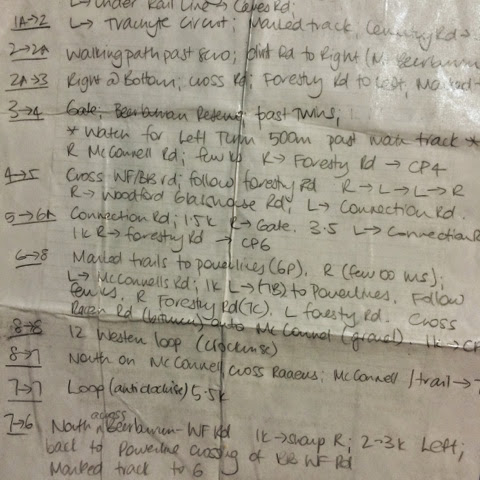 ↳ under Rail Line → Caves Rd;
1A→2 ↳ Trachyte Circuit; Marked track, Century Rd →
2→2A Walking path past Scno; dirt Rd to Right (N. Beerburrum
2A→3 Right @ Bottom; cross Rd; Forestry Rd to Left, Marked
3→4 Gate; Beerburrum Reserve past Twins,
* Watch for Left Turn 500m past main track *
R McConnell Rd; few ks R→ Foresty Rd → CP4
4→5 Cross WF/BB rd; follow forestry rd R→L→L→R
R→ Woodford Glasshouse Rd; L→ Connection Rd.
5→6A Connection Rd; 1.5k R→Gate. 3.5 L→Connection R
1k R→ forestry Rd → CP6
6→8 Marked trails to powerlines (6P). R (few 00 ms);
L→ McConnells Rd; 1k L→(7B) to Powerlines. Follow
few ks, R Forestry Rd (7C). L forestry Rd. Cross
Raaen Rd (bitumen) onto McConnel (gravel) 1k → CP
8→8 12 Western loop (clockwise)
8→7 North on McConnell cross Raaens; McConnell / trail → 7
7→7 Loop (anticlockwise) 5.5k
7→6 North across Beerburrum-WF Rd 1k→sharp R; 2-3k Left;
back to Powerline crossing of BB WF Rd
Marked track to 6